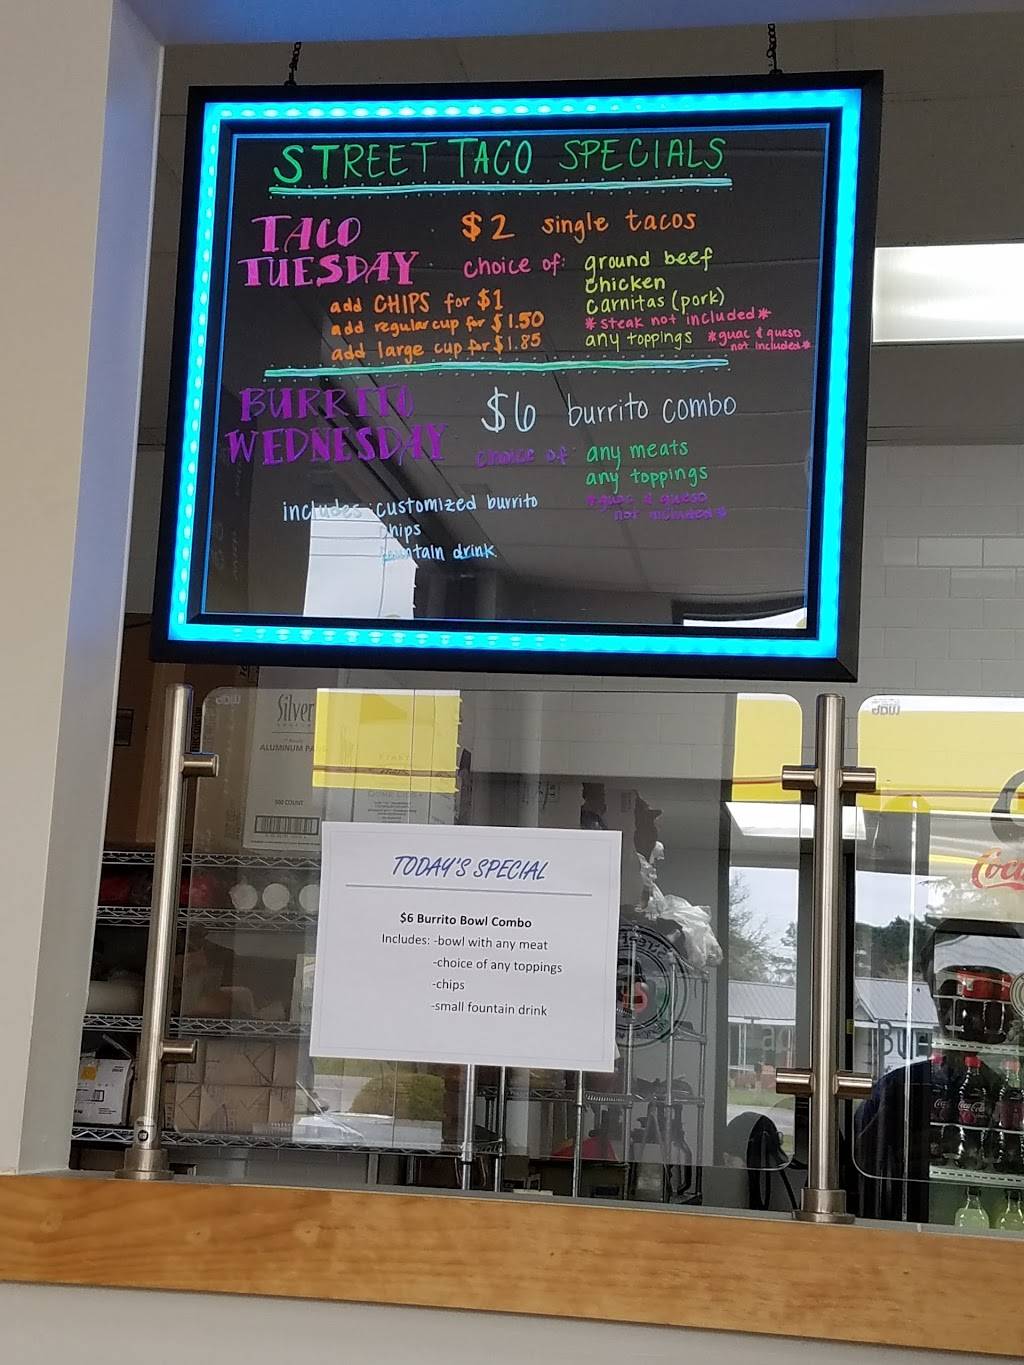 STREET TACO SPECIALS
TACO TUESDAY
$2 single tacos
choice of: ground beef
chicken
carnitas (pork)
*steak not included*
any toppings *guac & queso not included*
add CHIPS for $1
add regular cup for $1.50
add large cup for $1.85
BURRITO WEDNESDAY
$6 burrito combo
choice of: any meats
any toppings
*guac & queso
not included*
includes: customized burrito
chips
fountain drink
Silver
ALUMINUM
500 COUNT
TODAY'S SPECIAL
$6 Burrito Bowl Combo
Includes: -bowl with any meat
-choice of any toppings
-chips
-small fountain drink